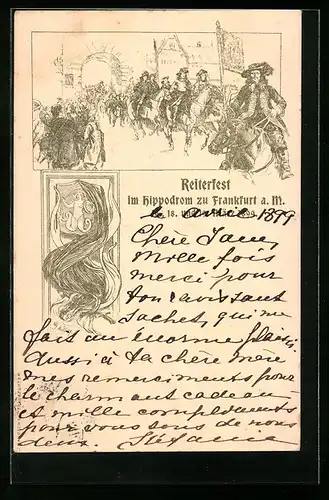 Reiterfest
im Hippodrom zu Frankfurt a. M.
18.
1899
Chère Jane,
Mille fois
merci pour
ton ravissant
sachet, qui me
fait un énorme plaisir
Aussi à ta chère mère
mes remerciments pour
le charmant cadeau
et mille compliments
pour vous tous de nous
deux. Stéfanie